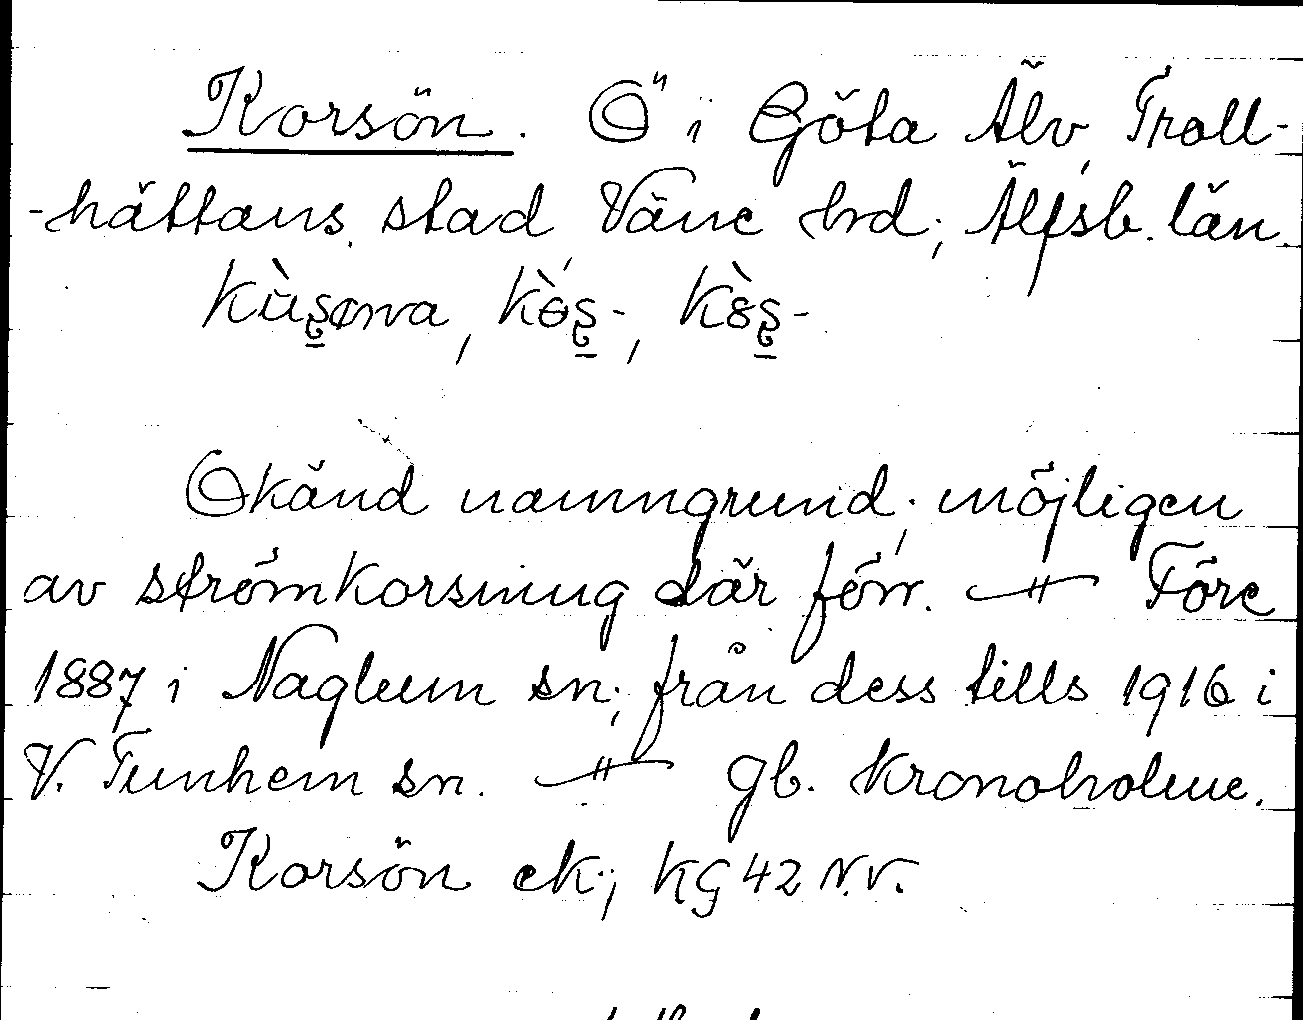 Korsön. Ö i Göta Älv, Troll-
-hättans stad, Väne hrd; Älfsb. län.
Kùʂøna, Kòʂ-, Kȣ̀ʂ-
Okänd namngrund; möjligen
av strömkorsning där förr. — " — Före
1887 i Naglum sn; från dess tills 1916 i
V. Tunhem sn. — " — gb. Kronoholme.
Korsön ek; KG 42 N.V.